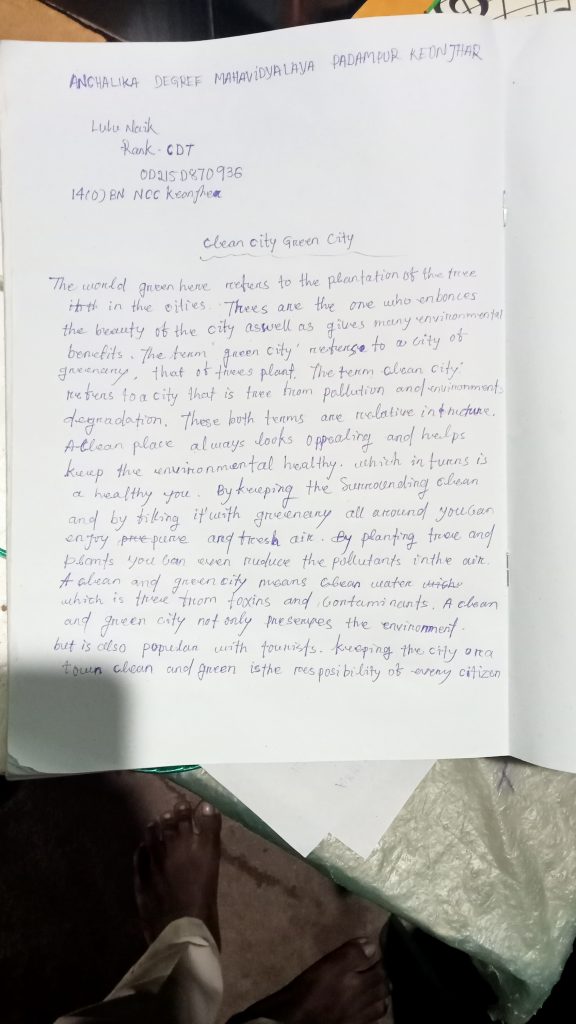 ANCHALIKA DEGREE MAHAVIDYALAYA PADAMPUR KEONJHAR
Lulu Naik
Rank - CDT
OD21SD870936
14(O) BN NCC Keonjhar
Clean City Green City
The world green here refers to the plantation of the tree
in the cities. Threes are the one who enbonces
the beauty of the city aswell as gives many environmental
benefits. The term 'green city' refers to a city of
greenary, that of trees plant. The term clean city'
refers to a city that is free from pollution and environments
degradation. These both terms are relative in
A Clean place always looks appealing and helps
keep the environmental healthy. which in turns is
a healthy you. By keeping the Surrounding clean
and by filling it with greenary all around you can
enjoy pure and fresh air. By planting tree and
plants you can even reduce the pollutants in the air.
A clean and green city means clean water
which is free from toxins and Contaminants. A clean
and green city not only preserves the environment.
but is also popular with tourists. keeping the city or a
town clean and green is the resposibility of every citizen